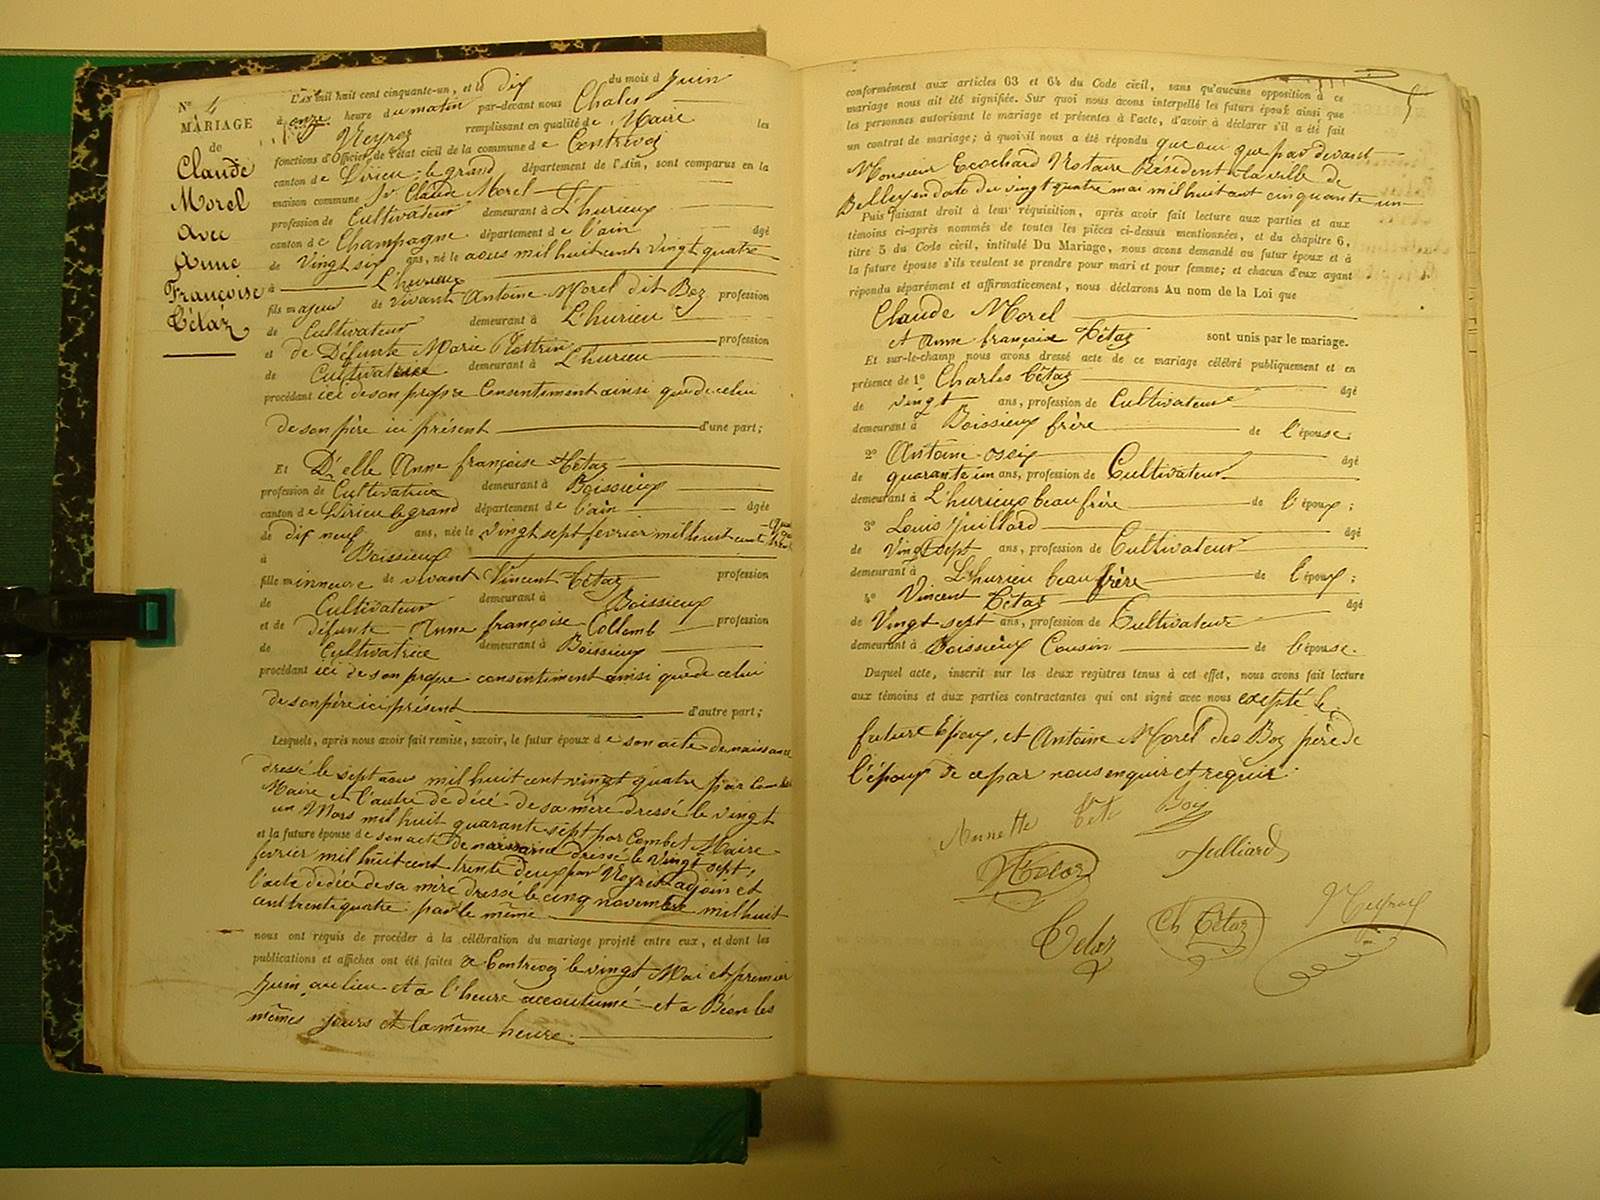 N° 4
MARIAGE
de
Claude
Morel
Avec
Anne
Françoise
Tétaz
L'AN mil huit cent cinquante-un, et le dix du mois d Juin
à onze heure du matin par-devant nous Chales
Neyroz remplissant en qualité de Maire les
fonctions d'Officier de l'état civil de la commune de Contrevoz
canton de Virieu-le grand département de l'Ain, sont comparus en la
maison commune Sr Claude Morel
profession de Cultivateur demeurant à L'hurieux
canton de Champagne département de l'ain âgé
de Vingt six ans, né le aous mil huit cent vingt quatre
à L'hurieux
fils majeur de vivant Antoine Morel dit Boz profession
de Cultivateur demeurant à L'hurieu
et de Défunte Marie profession
de Cultivatrice demeurant à L'hurieu
procédant ici de son propre Consentement ainsi que de celui
de son père ici présent d'une part;
Et Delle Anne françoise Tétaz
profession de Cultivatrice demeurant à Boissieux
canton de Virieu le grand département de l'ain âgée
de dix neuf ans, née le vingt sept fevrier mil huit cent
à Boissieux
fille minneure de vivant Vincent Tétaz profession
de Cultivateur demeurant à Boissieux
et de défunte Anne françoise Collomb profession
de Cultivatrice demeurant à Boissieux
procédant ici de son propre consentement ainsi que de celui
de son père ici présent d'autre part;
Lesquels, après nous avoir fait remise, savoir, le futur époux de son acte de naissance
dressé le sept aous mil huit cent vingt quatre par Combet
Maire et l'autre de décé de sa mère dressé le vingt
un Mars mil huit quarante sept par Combet Maire
et la future épouse de son acte de naissance dressé le Vingt sept
fevrier mil huit cent trente deux par Neyroz adjoin et
l'acte de décé de sa mère dressé le cinq novembre mil huit
cent trente quatre par le même
nous ont requis de procéder à la célébration du mariage projeté entre eux, et dont les
publications et affiches ont été faites à Contrevoz le vingt Mai et premier
Juin au lieu et a l'heure accoutumé et a Béon les
mêmes jours et la même heure.
5
conformément aux articles 63 et 64 du Code civil, sans qu'aucune opposition à ce
mariage nous ait été signifiée. Sur quoi nous avons interpellé les futurs époux ainsi que
les personnes autorisant le mariage et présentes à l'acte, d'avoir à déclarer s'il a été fait
un contrat de mariage; à quoi il nous a été répondu que oui que par devant
Monsieur Ecochard Notaire Résident à la ville de
Belley en date du vingt quatre mai mil huit cent cinquante un
Puis faisant droit à leur réquisition, après avoir fait lecture aux parties et aux
témoins ci-après nommés de toutes les pièces ci-dessus mentionnées, et du chapitre 6,
titre 5 du Code civil, intitulé Du Mariage, nous avons demandé au futur époux et à
la future épouse s'ils veulent se prendre pour mari et pour femme; et chacun d'eux ayant
répondu séparément et affirmativement, nous déclarons Au nom de la Loi que
Claude Morel
et Anne françoise Tétaz sont unis par le mariage.
Et sur-le-champ nous avons dressé acte de ce mariage célébré publiquement et en
présence de 1° Charles Tétaz âgé
de vingt ans, profession de Cultivateur
demeurant à Boissieux frère de l'épouse;
2° Antoine âgé
de quarante un ans, profession de Cultivateur
demeurant à L'hurieux beau frère de l'époux;
3° Louis Juillard âgé
de Vingt sept ans, profession de Cultivateur
demeurant à L'hurieu beau frère de l'époux;
4° Vincent Tétaz âgé
de Vingt sept ans, profession de Cultivateur
demeurant à Boissieux Cousin de l'épouse.
Duquel acte, inscrit sur les deux registres tenus à cet effet, nous avons fait lecture
aux témoins et aux parties contractantes qui ont signé avec nous exepté le
future Epoux, et Antoine Morel des Boz père de
l'époux de ce par nous enquir et requir.
Annette Tété
Tétaz Julliard
Tetaz Ch Tétaz Neyroz